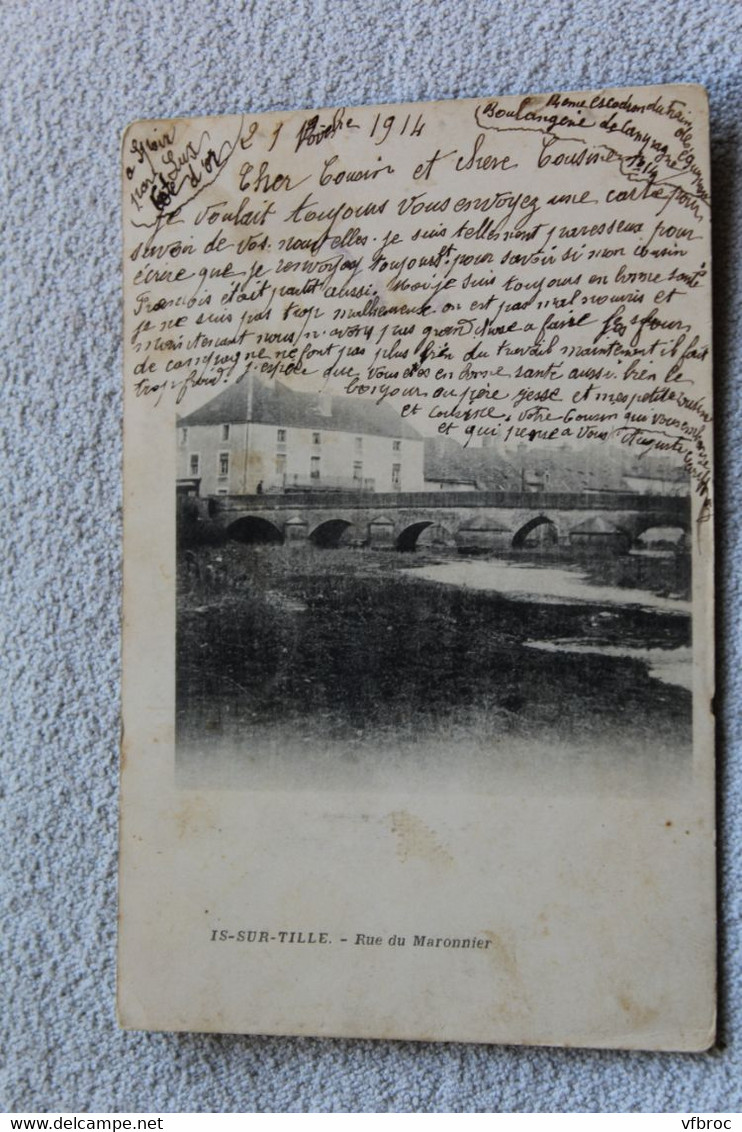 21 Novbre 1914
Côte d'or
Boulangerie de Campagne
Cher Cousin et chere Cousine
je voulait toujours vous envoyez une carte pour
savoir de vos nouvelles. je suis tellement paresseux pour
écrire que je renvoyai toujours. pour savoir si mon cousin
François était partit aussi. moi je suis toujours en bonne santé
je ne suis pas trop malheureux on est pas mal nourris et
maintenant nous n'avons pas grand chose a faire les fours
de campagne ne font pas plus bien du travail maintenant il fait
trop froid. j'espère que vous etes en bonne santé aussi. bien le
bonjour au père jesse et mes petits cousins
et cousine. votre Cousin qui vous embrasse
et qui pense a vous Auguste
IS-SUR-TILLE. - Rue du Maronnier
vfbroc